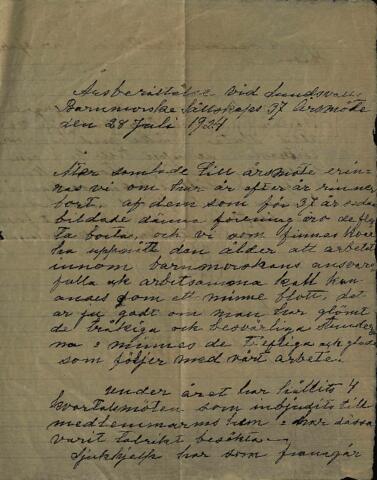 Årsberättelse vid Sundsvalls
Barnmorske Sällskaps 37 Årsmöte
den 28 Juli 1924
Åter samlade till årsmöte erin-
ras vi om hur år efter år rinner
bort, af dem som för 37 år sedan
bildade denna förening äro de fles
ta borta, och vi som finnas kvar
ha uppnått den ålder att arbetet
innom barnmorskans ansvars
fulla och arbetsamma kall kan
anses som ett minne blott, det
är ju godt om man har glömt
de tråkiga och besvärliga stunder
na o minnes de trefliga och glada
som följer med vårt arbete.
Under året har hållits 4
kvartalsmöten som inbjudits till
medlemmarnas hem o har dessa
varit talrikt besökta
Sjukhjelp har som framgår